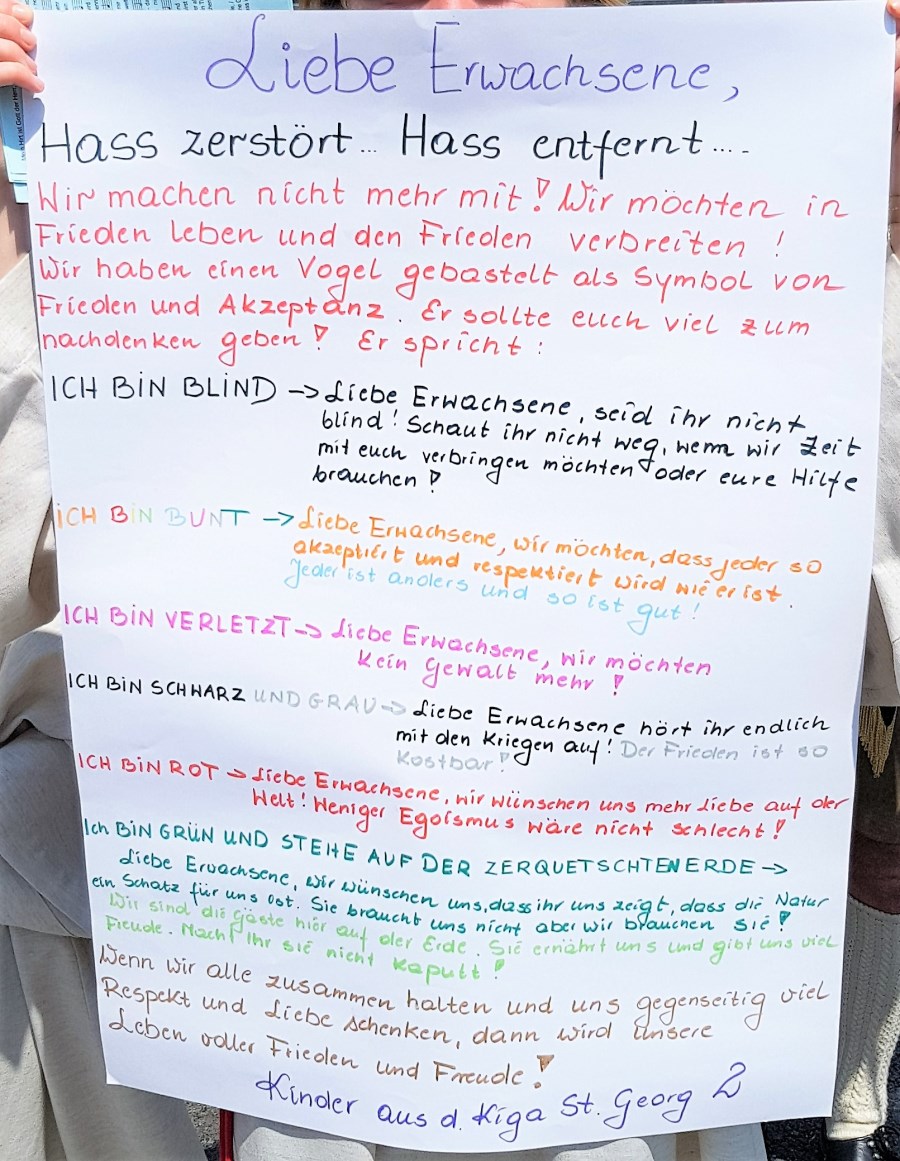 Liebe Erwachsene,
Hass zerstört... Hass entfernt....
Wir machen nicht mehr mit! Wir möchten in
Frieden leben und den Frieden verbreiten !
Wir haben einen Vogel gebastelt als Symbol von
Frieden und Akzeptanz. Er sollte euch viel zum
nachdenken geben! Er spricht:
ICH BIN BLIND -> Liebe Erwachsene, seid ihr nicht
blind! Schaut ihr nicht weg, wenn wir Zeit
mit euch verbringen möchten oder eure Hilfe
brauchen!
ICH BIN BUNT -> Liebe Erwachsene, wir möchten, dass jeder so
akzeptiert und respektiert wird wie er ist.
Jeder ist anders und so ist gut!
ICH BIN VERLETZT -> Liebe Erwachsene, wir möchten
kein Gewalt mehr!
ICH BIN SCHWARZ UND GRAU -> Liebe Erwachsene hört ihr endlich
mit den Kriegen auf! Der Frieden ist so
kostbar!
ICH BIN ROT -> Liebe Erwachsene, wir wünschen uns mehr Liebe auf der
Welt! Weniger Egoismus wäre nicht schlecht!
Ich BIN GRÜN UND STEHE AUF DER ZERQUETSCHTEN ERDE ->
Liebe Erwachsene, wir wünschen uns, dass ihr uns zeigt, dass die Natur
ein Schatz für uns ist. Sie braucht uns nicht aber wir brauchen Sie!
Wir sind die gäste hier auf der Erde. Sie ernährt uns und gibt uns viel
Freude. Macht Ihr sie nicht kaputt!
Wenn wir alle zusammen halten und uns gegenseitig viel
Respekt und Liebe schenken, dann wird unsere
Leben voller Frieden und Freude!
Kinder aus d. Kiga St. Georg 2